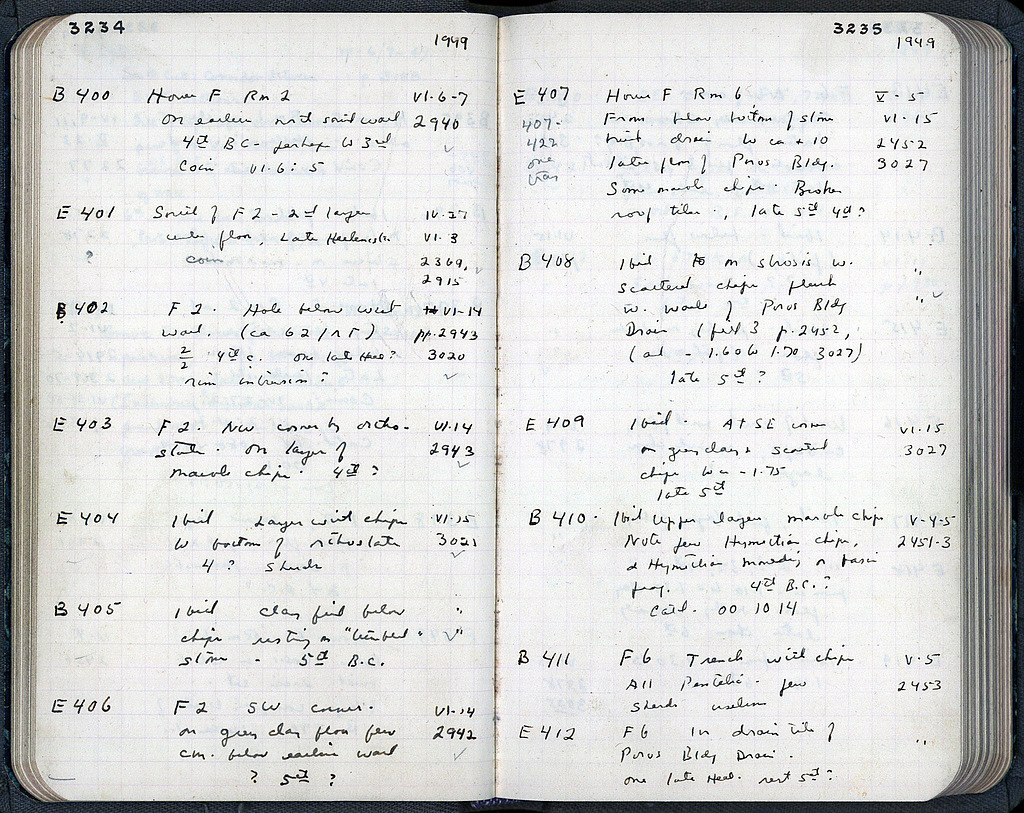 3234
1949
B 400 House F Rm 2 VI-6-7
on earlier north south wall 2940
4th B.C- perhaps W 3rd
Coin VI-6: 5
E 401 South of F2 - 2nd layer IV-27
under floor, Late Hellenistic VI-3
? coin 2369,
2915
B 402 F 2. Hole below west VI-14
wall. (ca 62/ ) pp. 2943
2/2 4th c. one late Hell? 3020
rim intrusion?
E 403 F 2. NW corner by ortho- VI-14
state. On layer of 2943
marble chips. 4th ?
E 404 Ibid Layer with chips VI-15
W bottom of orthostate 3021
4 ? sherds
B 405 Ibid clay fill below "
chips resting on " " "
stone - 5th B.C.
E 406 F 2 SW corner. VI-14
on grey clay floor few 2942
cm. below earlier wall
? 5th ?
3235
1949
E 407 House F Rm 6 V - 5
407- From below bottom of stone VI-15
422 drain W ca + 10 2452
one late floor of Poros Bldg. 3027
Some marble chips. Broken
roof tiles., late 5th 4th?
B 408 Ibid in stosis w. "
scattered chips flush "
w. wall of Poros Bldg
Drain (fill 3 p. 2452,
( - 1.60 W 1.70 3027)
late 5th ?
E 409 Ibid. At SE corner VI-15
on grey clay & scattered 3027
chips W - 1.75
late 5th
B 410. Ibid Upper layer marble chips V-4-5
Note few Hymettian chips, 2451-3
& Hymettian moulding or basin
frag. 4th B.C.?
Card. 00 10 14
B 411 F 6 Trench with chips V-5
All Pentelic. few 2453
sherds useless
E 412 F 6 In drain tile of "
Poros Bldg Drain.
one late Hell. rest 5th?